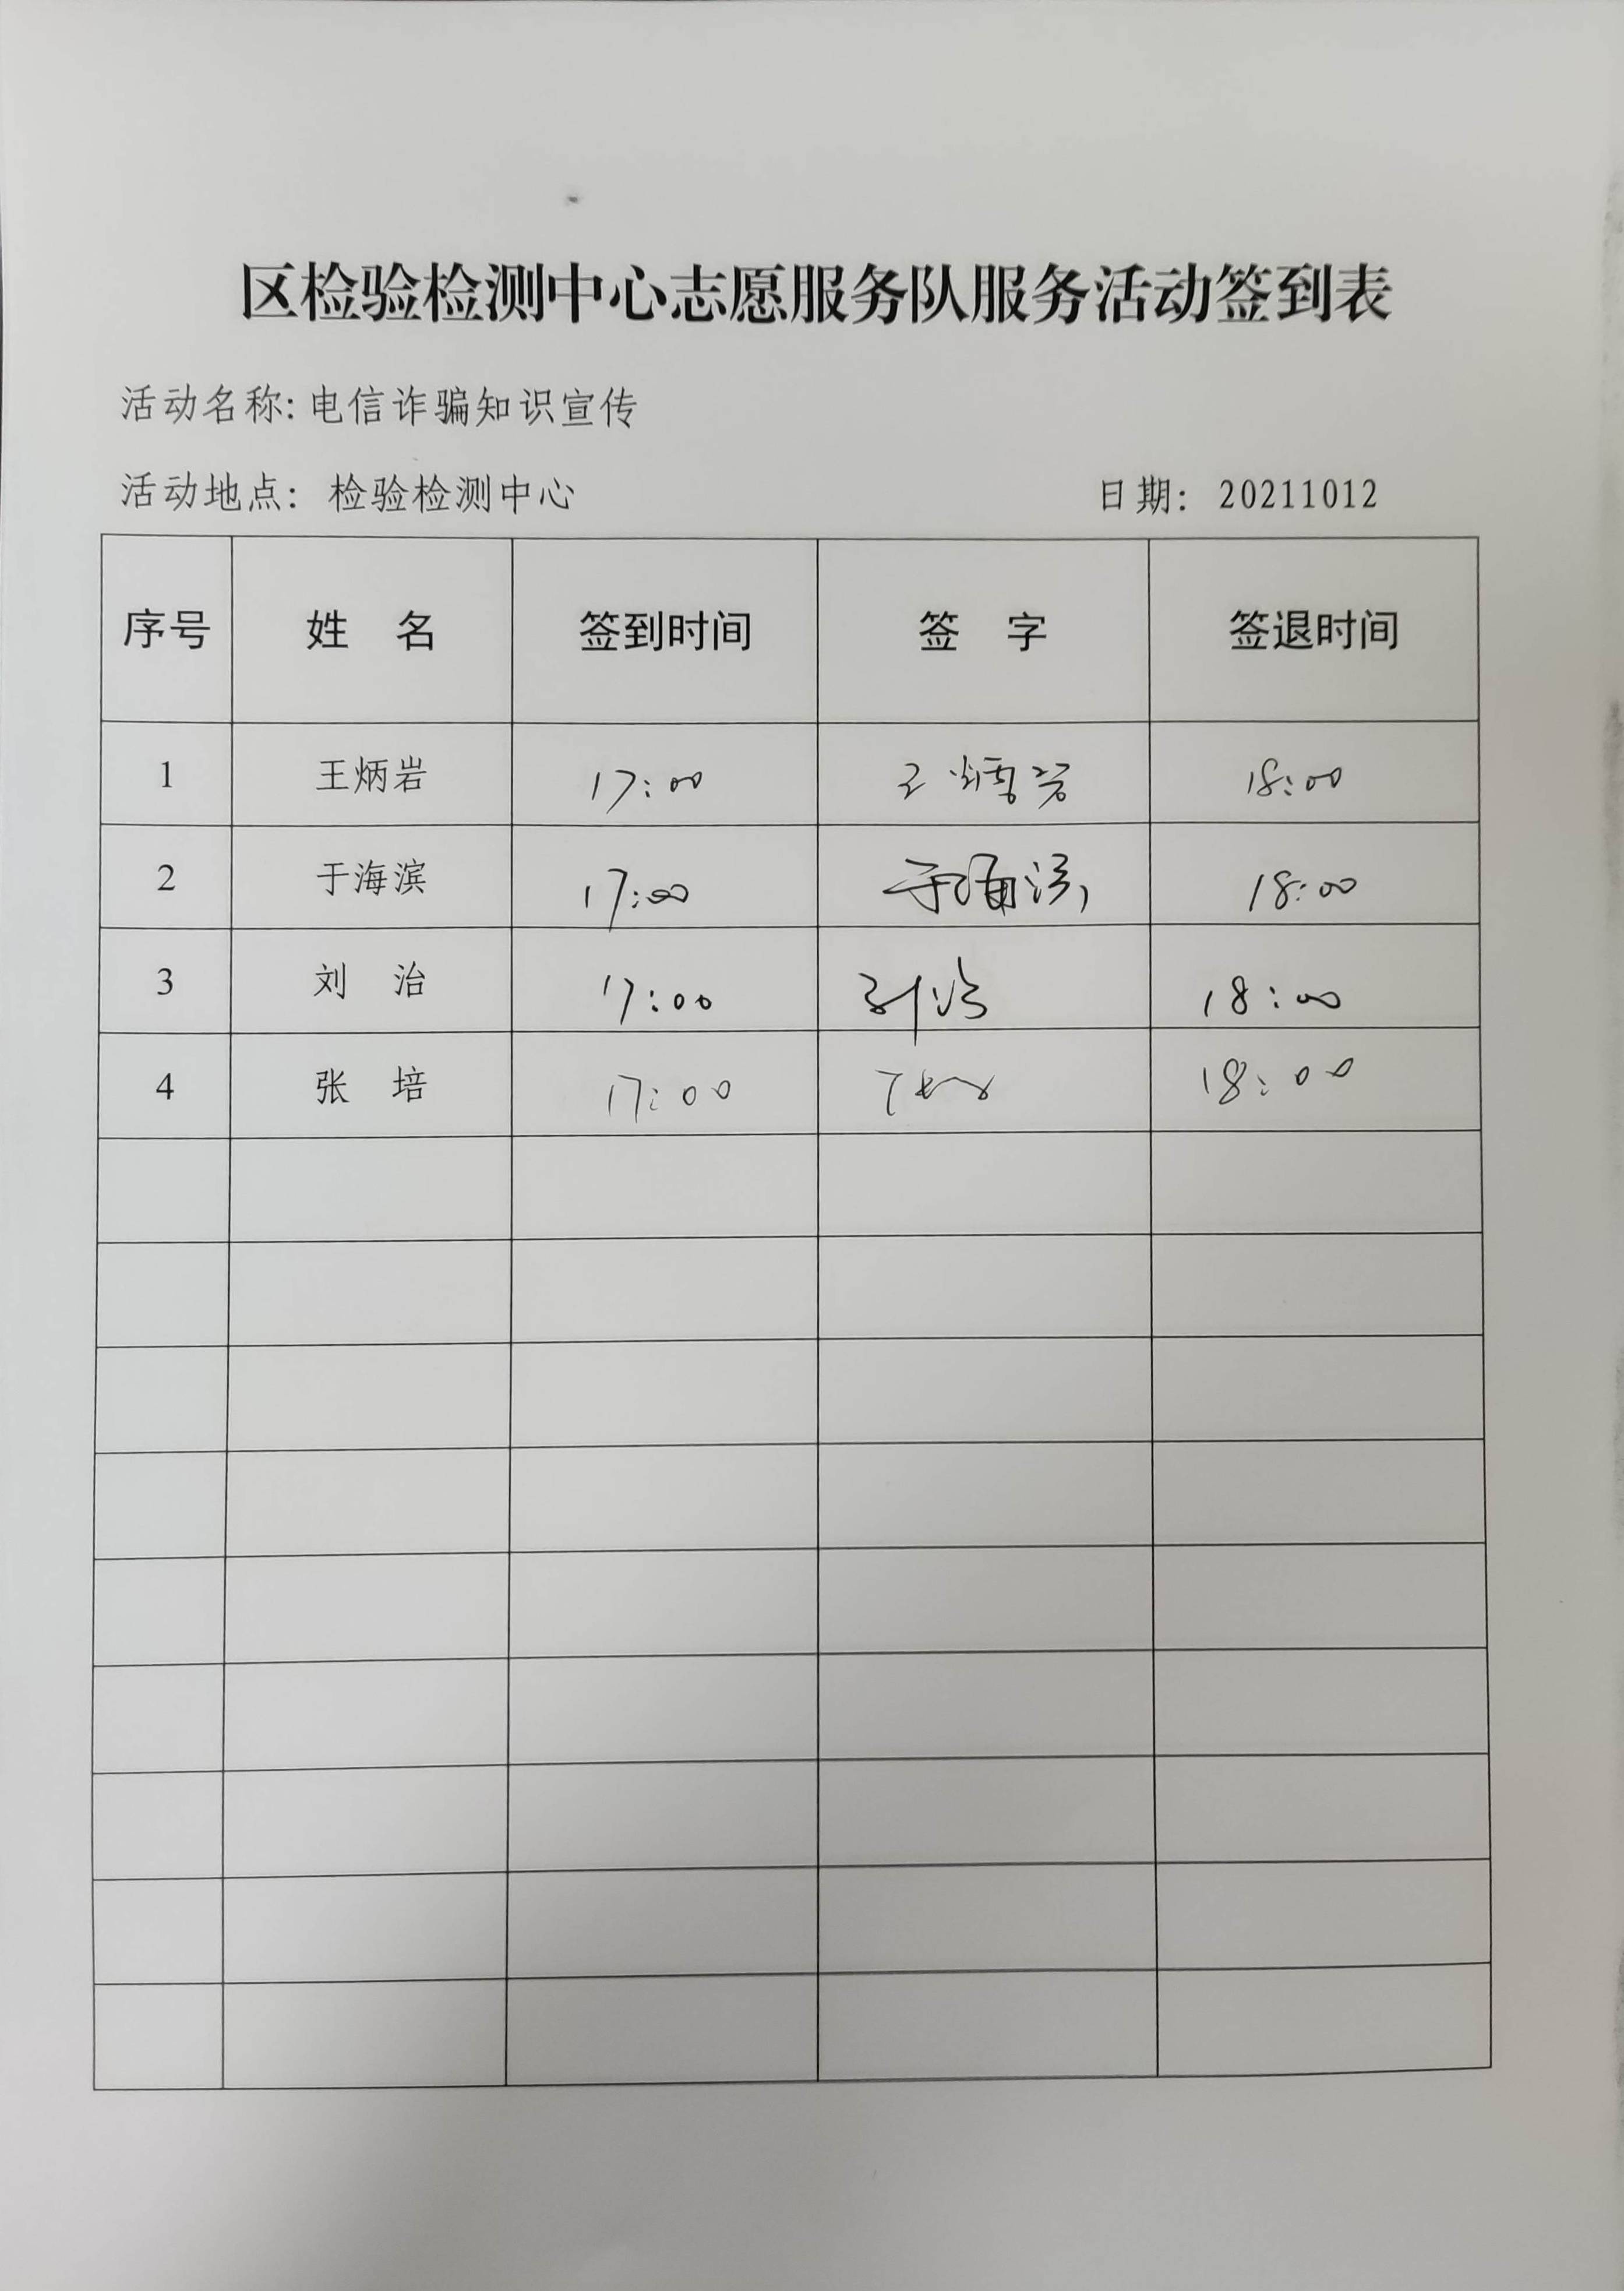 区检验检测中心志愿服务队服务活动签到表
活动名称:电信诈骗知识宣传
活动地点: 检验检测中心 日期: 20211012
序号 姓 名 签到时间 签 字 签退时间
1 王炳岩 17:00 王炳岩 18:00
2 于海滨 17:00 于海滨 18:00
3 刘 治 17:00 刘治 18:00
4 张 培 17:00 18:00